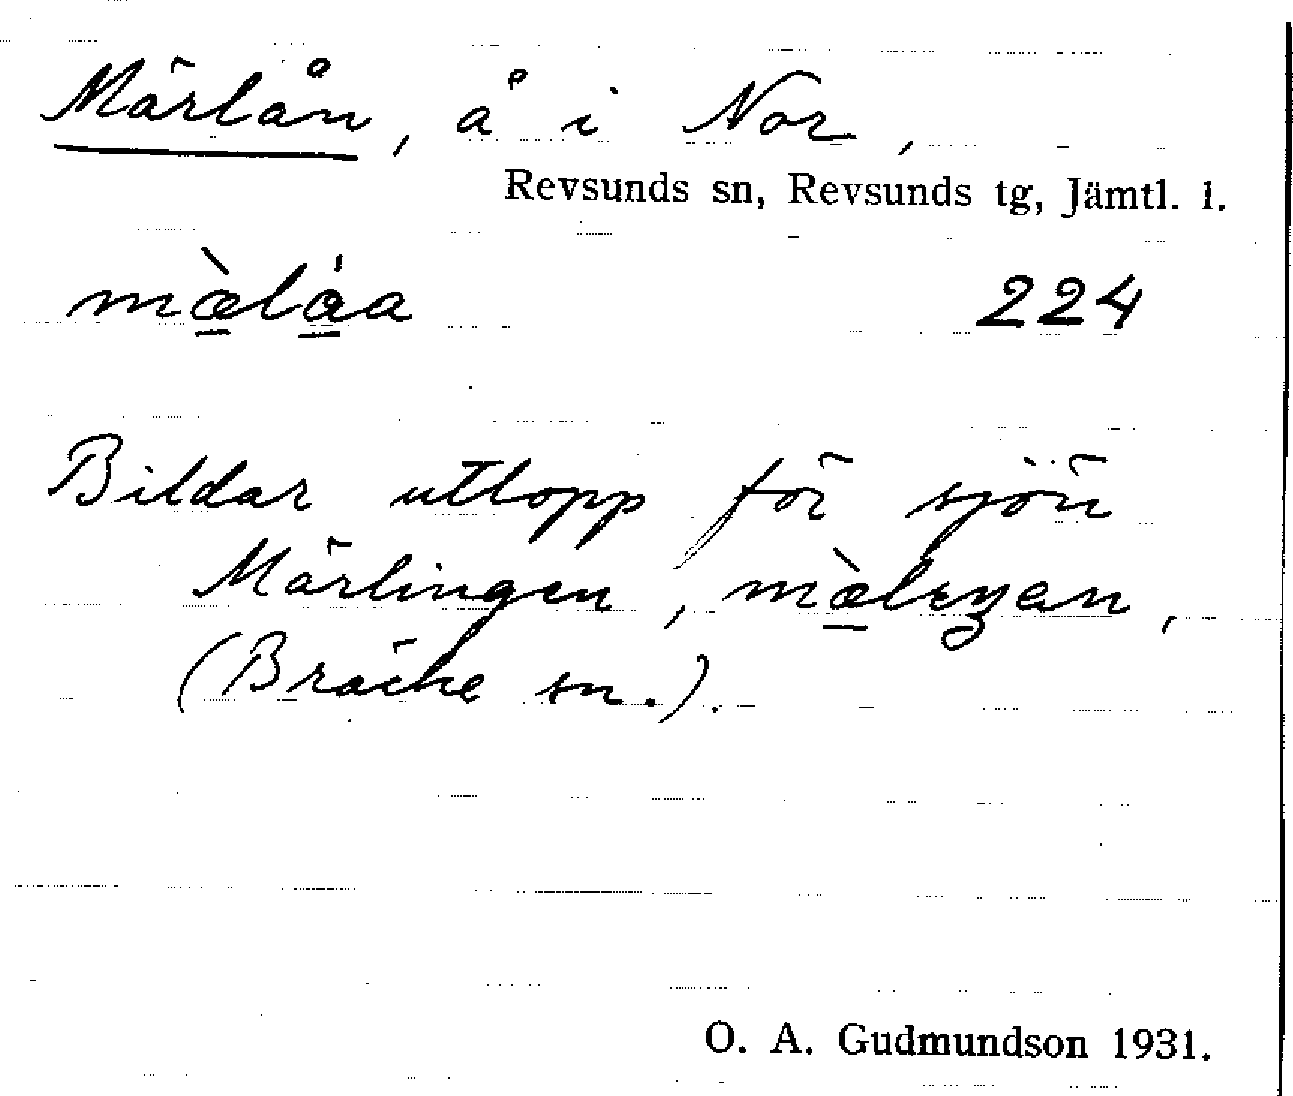 Märlån, å i Nor,
Revsunds sn, Revsunds tg, Jämtl. l.
mæ̀lå̀a 224
Bildar utlopp för sjön
Märlingen, mæ̀lıŋan,
(Bräcke sn.).
O. A. Gudmundson 1931.